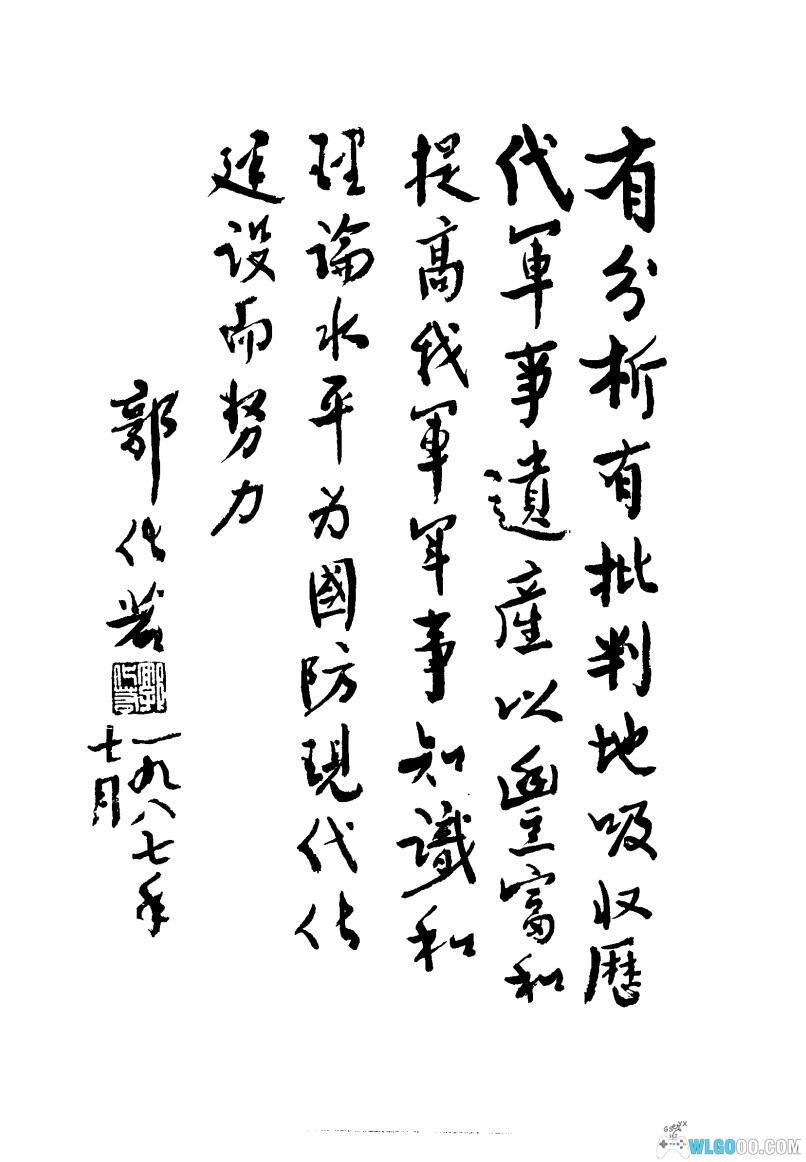 有分析有批判地吸收歷
代軍事遺產以豐富和
提高我軍军事知識和
理論水平为國防現代化
建设而努力
郭化若
一九八七年
七月
WLGOOO.COM